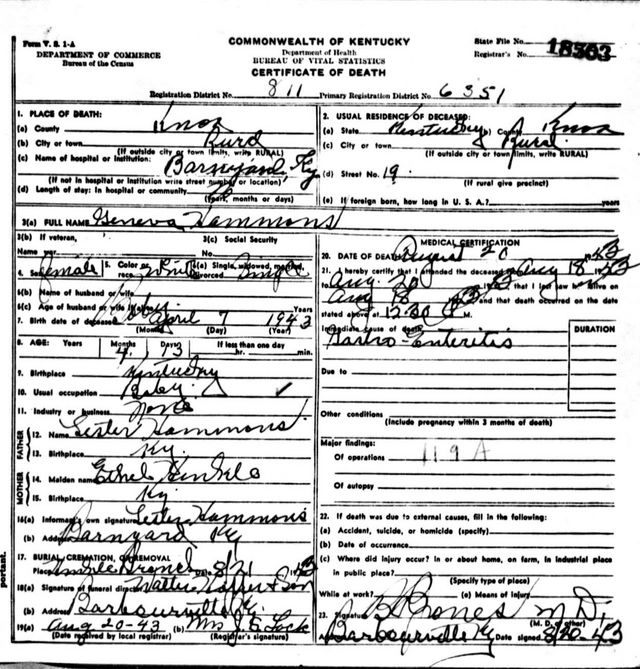 Form V. S. 1-A
DEPARTMENT OF COMMERCE
Bureau of the Census
COMMONWEALTH OF KENTUCKY
Department of Health
BUREAU OF VITAL STATISTICS
CERTIFICATE OF DEATH
State File No. 18503
Registrar's No.
Registration District No. 811 Primary Registration District No. 6351
1. PLACE OF DEATH:
(a) County Knox
(b) City or town Rural
(If outside city or town limits, write RURAL)
(c) Name of hospital or institution:
Barnyard, Ky
(If not in hospital or institution write street number or location)
(d) Length of stay: In hospital or community
(years, months or days)
2. USUAL RESIDENCE OF DECEASED:
(a) State Kentucky (b) County Knox
(c) City or town Rural
(If outside city or town limits, write RURAL)
(d) Street No. 19
(If rural give precinct)
(e) If foreign born, how long in U. S. A.? years
3(a) FULL NAME Geneva Hammons
3(b) If veteran,
Name war
3(c) Social Security
No.
4. Sex Female 5. Color or race White 6(a) Single, widowed, married, divorced Single
6(b) Name of husband or wife
6(c) Age of husband or wife Years
7. Birth date of deceased April 7 1943
(Month) (Day) (Year)
8. AGE: Years Months 4 Days 13 If less than one day
hr. min.
9. Birthplace Kentucky
10. Usual occupation Baby
11. Industry or business None
FATHER
12. Name Lester Hammons
13. Birthplace Ky.
MOTHER
14. Maiden name Ethel
15. Birthplace Ky
16(a) Informant's own signature Lester Hammons
(b) Address Barnyard Ky
17. BURIAL, CREMATION, OR REMOVAL
Place Date 8/21 1943
18(a) Signature of funeral director Walter Hopper & Son
(b) Address Barbourville Ky.
19(a) Aug 20-43 (b) Mrs J. E. Lock
(Date received by local registrar) (Registrar's signature)
MEDICAL CERTIFICATION
20. DATE OF DEATH August 20 1943
21. I hereby certify that I attended the deceased Aug 18 1943
Aug. 20 1943 that I last saw alive on
Aug 18 1943 and that death occurred on the date
stated above at 12:30 M.
Immediate cause of death
Gastro-Enteritis
DURATION
Due to
Other conditions
(Include pregnancy within 3 months of death)
Major findings:
Of operations 119A
Of autopsy
22. If death was due to external causes, fill in the following:
(a) Accident, suicide, or homicide (specify)
(b) Date of occurrence
(c) Where did injury occur? In or about home, on farm, in industrial place
in public place?
(Specify type of place)
While at work? (e) Means of injury
23. Signature Jones M.D.
(M. D. or other)
Address Barbourville Ky Date signed 8/20-43
portant.